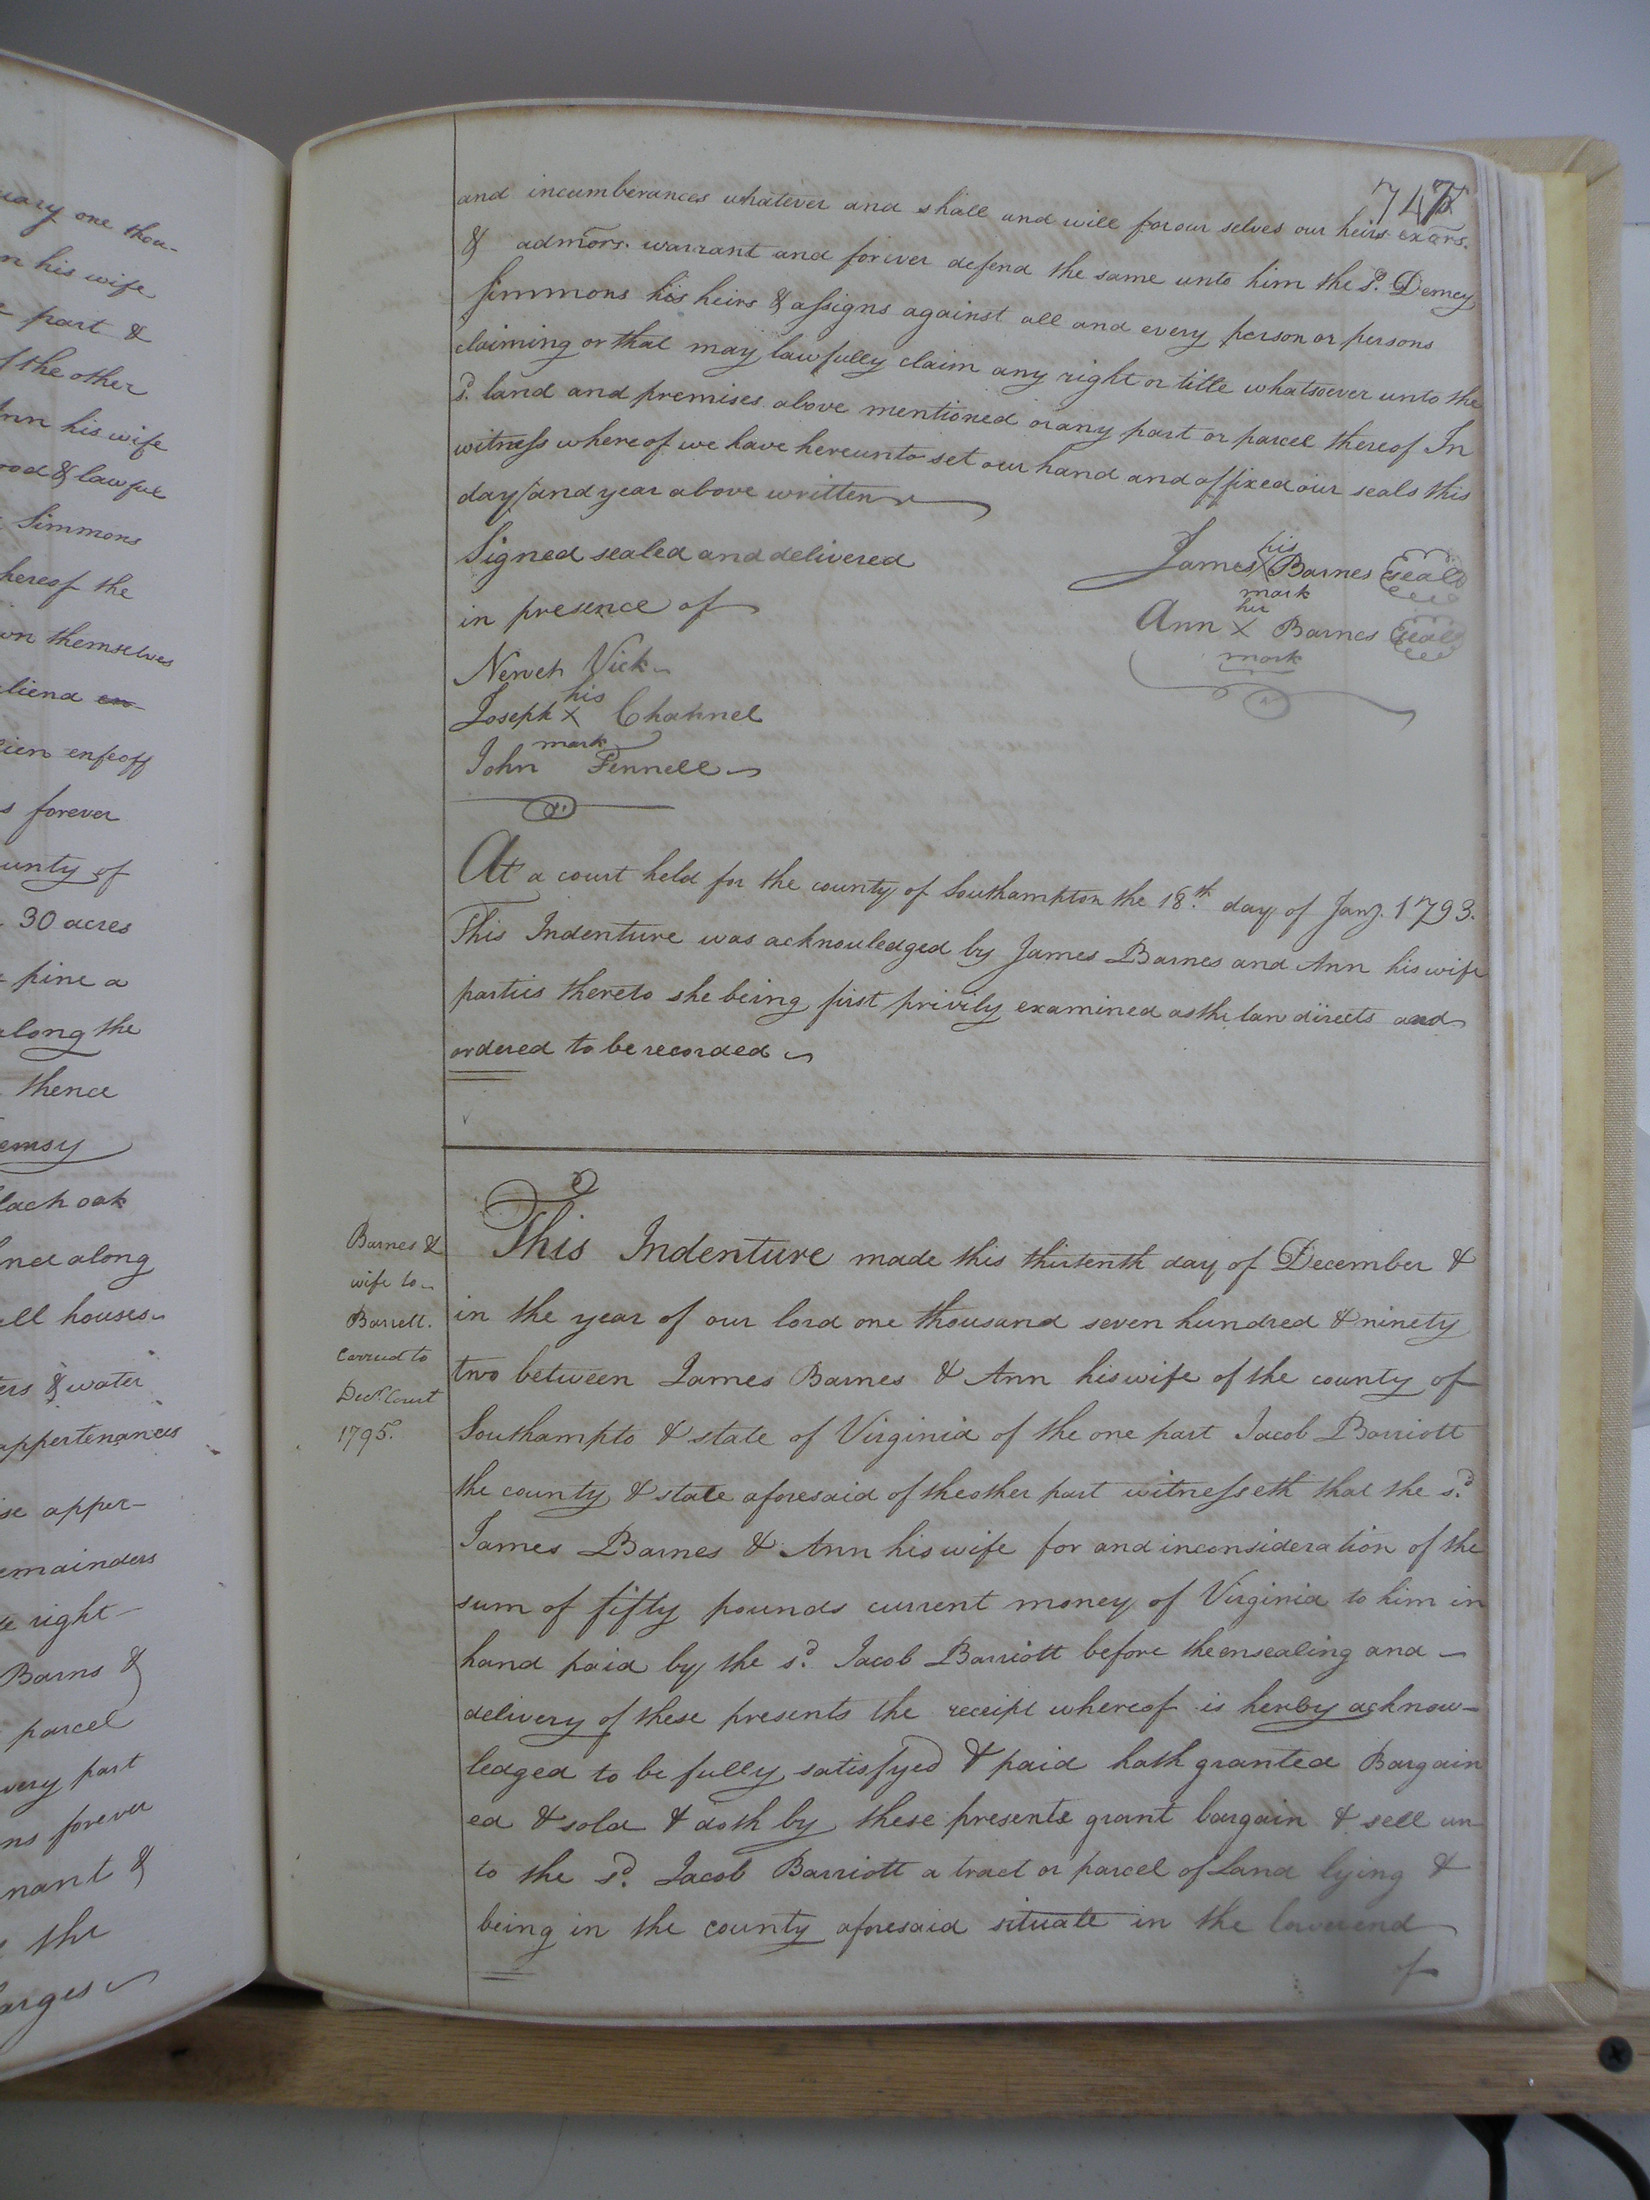 uary one thou-
n his wife
part &
f the other
Ann his wife
ood & lawful
Simmons
hereof the
wn themselves
liend en-
lien enfeoff
s forever
unty of
30 acres
pine a
along the
thence
emsy
lack oak
nd along
all houses
ers & water
appertenances
se apper-
emainders
e right
Barns &
parcel
very part
ns forever
nant &
the
arges
747
and incumberances whatever and shall and will for our selves our heirs exārs.
& admōrs. warrant and foriver defend the same unto him the sd. Demcy
Simmons his heirs & assigns against all and every person or persons
claiming or that may lawfully claim any right or title whatsoever unto the
sd. land and premises above mentioned or any part or parcel thereof In
witness whereof we have hereunto set our hand and affixed our seals this
day and year above written
Signed sealed and delivered
in presence of
his
James X Barnes seal
mark
her
Ann X Barnes seal
mark
Vick
his
Joseph X Channel
mark
John Fennell
At a court held for the county of Southampton the 18.th day of Jany. 1793.
This Indenture was acknowledged by James Barnes and Ann his wife
parties thereto she being first privily examined as the law directs and
ordered to be recorded
Barnes &
wife to
Barrett.
Carried to
Decr. Court
1795.
This Indenture made this thirtenth day of December &
in the year of our lord one thousand seven hundred & ninety
two between James Barnes & Ann his wife of the county of
Southampto & state of Virginia of the one part Jacob Barriott
the county & state aforesaid of the other part witnesseth that the sd.
James Barnes & Ann his wife for and in consideration of the
sum of fifty pounds current money of Virginia to him in
hand paid by the sd. Jacob Barriott before the ensealing and
delivery of these presents the receipt whereof is herby acknow-
ledged to be fully satisfyed & paid hath granted Bargain
ed & sold & doth by these presents grant bargain & sell un
to the sd. Jacob Barriott a tract or parcel of Land lying &
being in the county aforesaid situate in the lower end
of